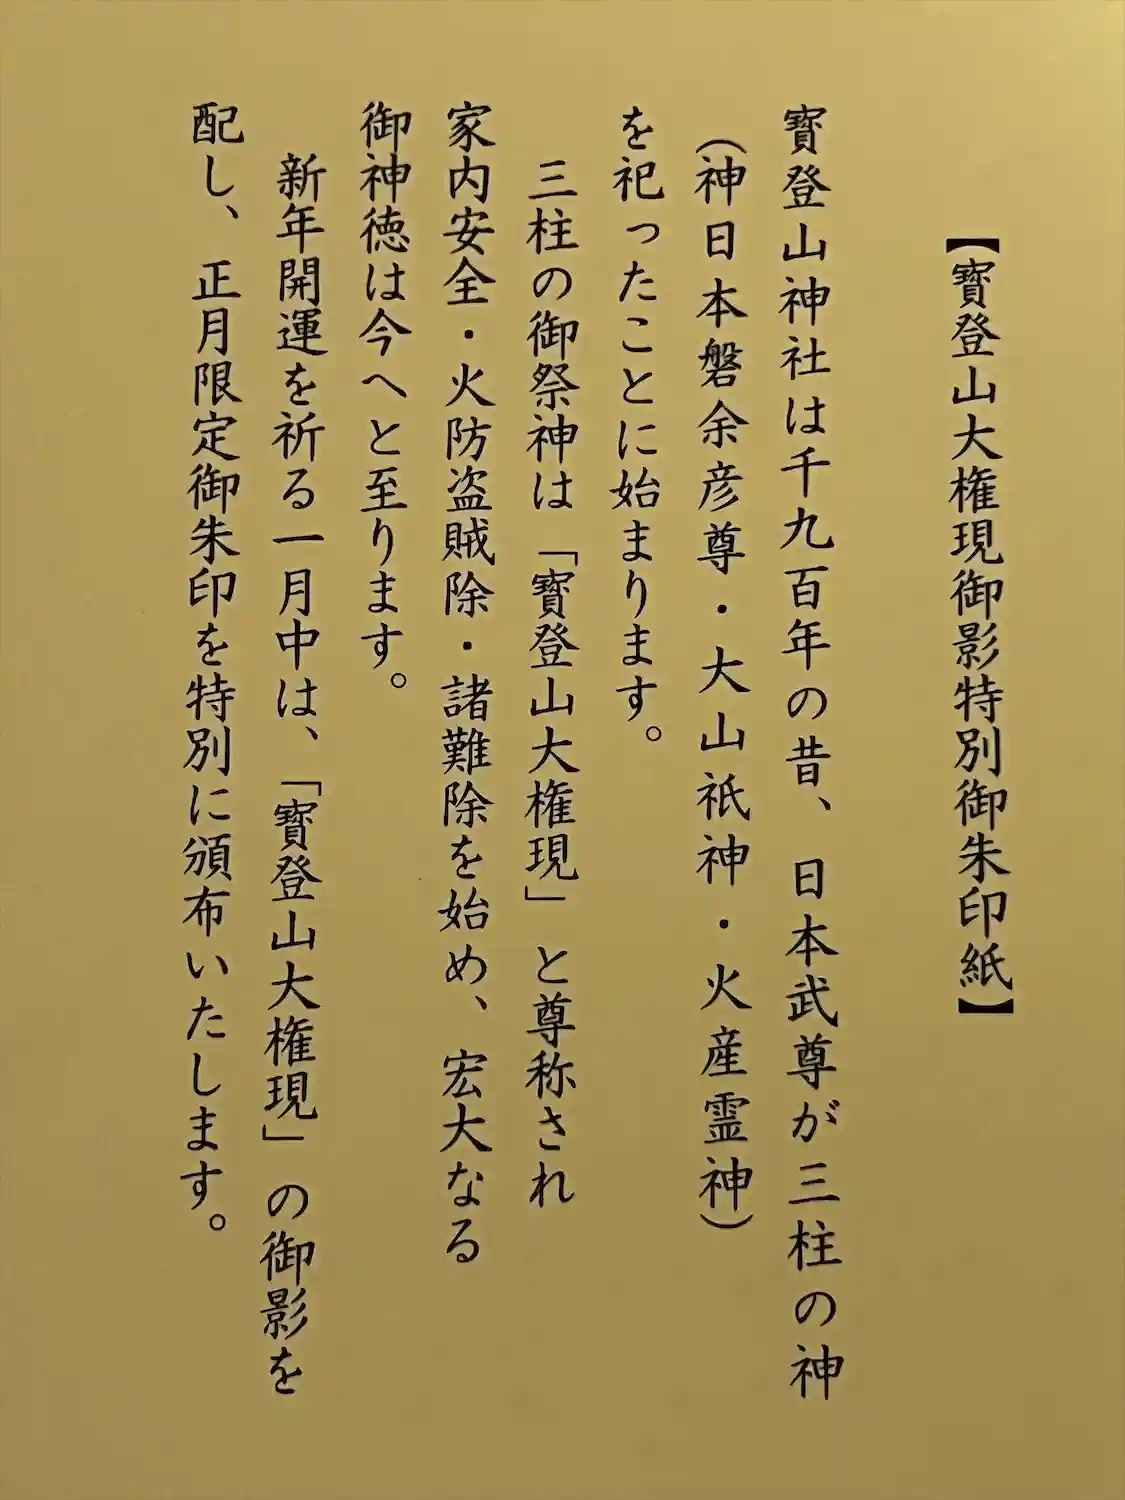 【寳登山大権現御影特別御朱印紙】
寳登山神社は千九百年の昔、日本武尊が三柱の神
（神日本磐余彦尊・大山祇神・火産霊神）
を祀ったことに始まります。
三柱の御祭神は「寳登山大権現」と尊称され
家内安全・火防盗賊除・諸難除を始め、宏大なる
御神徳は今へと至ります。
新年開運を祈る一月中は、「寳登山大権現」の御影を
配し、正月限定御朱印を特別に頒布いたします。